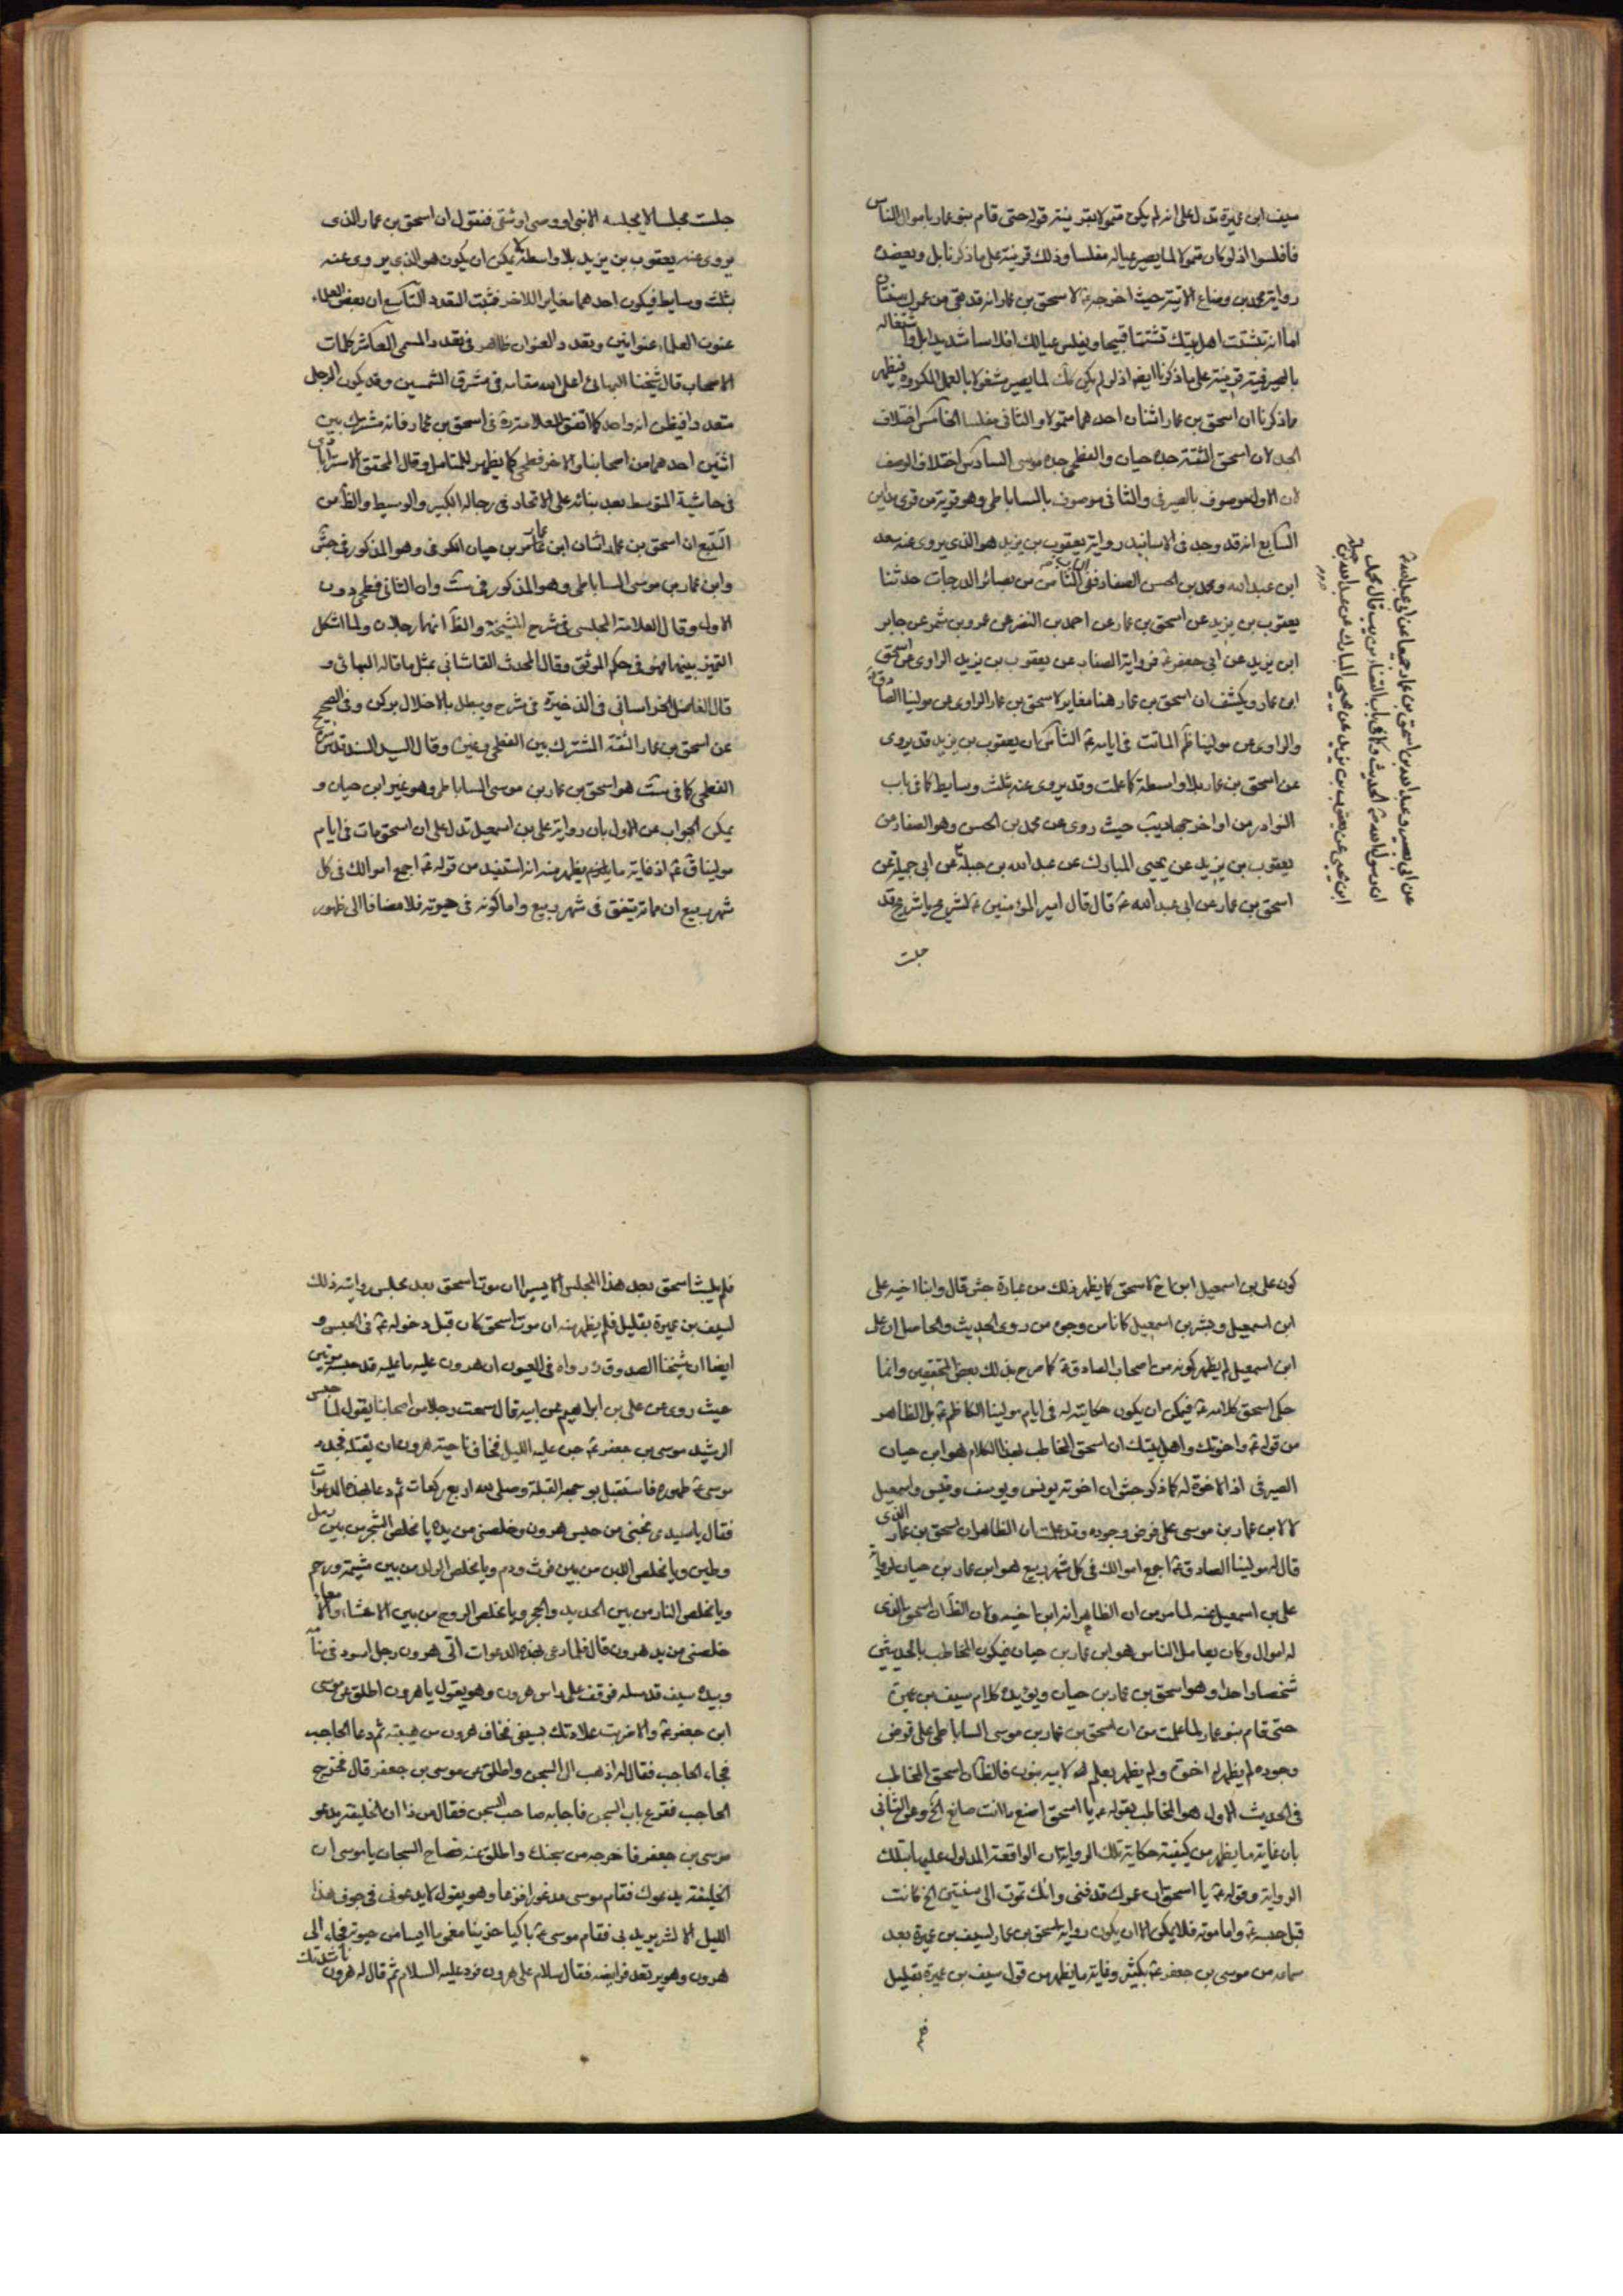 سيف ابن عميرة تدل على انه لم يكن متمولا بقرينة قوله حتى قام بنو عمار باموال الناس
فافلسوا اذ لو كان متمولا لما يصير عياله مفلسا وذلك قرينة على ما ذكرنا بل وبعضده
رواية محمد بن وضاع الاتية حيث اخرجه لاسحق بن عمار انه قد بقى من عمرك سنتان
اما انه تشتت اهل بيتك تشتتا قبيحا ويفلس عيالك افلاسا شديدا بل واشتغاله
بالصيرفية قرينة على ما ذكرنا ايضا اذ لو لم يكن كك لما يصير مشغولا بالعمل المكروه فيظهر
ماذكرنا ان اسحق بن عمار اثنان احدهما متمولا والثانى مفلسا الخامس اختلاف
الجد لان اسحق الثقة جده حيان والفطحى جده موسى السادس اختلاف الوصف
لان الاول موصوف بالصيرفى والثانى موصوف بالساباطى وهو قرية من قرى مداين
السابع انه قد وجد فى الاسانيد رواية يعقوب بن يزيد هو الذى يروى عنه سعد
ابن عبد الله ومحمد بن الحسن الصفار ففى الباب الثامن من بصائر الدرجات حدثنا
يعقوب بن يزيد عن اسحق بن عمار عن احمد بن النضر عن عمرو بن شمر عن جابر
ابن يزيد عن ابى جعفر ع فرواية الصفار عن يعقوب بن يزيد الراوى عن اسحق
ابن عمار ويكشف ان اسحق بن عمار هنا مغاير لاسحق بن عمار الراوى عن مولينا الصادق ع
والراوى عن مولينا ظم المائت فى ايامه ع الثامن ان يعقوب بن يزيد قد يروى
عن اسحق بن عمار بلا واسطة كما علمت وقد يروى عنه بثلث وسايط كما فى باب
النوادر من اواخر جهاديب حيث روى عن محمد بن الحسن وهو الصفار عن
يعقوب بن يزيد عن يحيى المبارك عن عبد الله بن جبلة عن ابى جميلة عن
اسحق بن عمار عن ابى عبد الله ع قال قال امير المؤمنين ع لشريح يا شريح قد
جلست
ابن يحيى عن يعقوب بن يزيد عن يحيى المبارك عن عبد الله بن جبلة
عن ابى بصير وعبد الله بن اسحق بن عمار جميعا عن ابى عبد الله ع
جلست مجلسا لا يجلسه الا نبى او وصى او شقى فنقول ان اسحق بن عمار الذى
يروى عنه يعقوب بن يزيد بلا واسطة لا يمكن ان يكون هو الذى يروى عنه
بثلث وسايط فيكون احدهما مغاير اللاخر فثبت التعدد التاسع ان بعض العلماء
عنون العلماء عنوانين وتعدد العنوان ظاهر فى تعدد المسمى العاشر كلمات
الاصحاب قال شيخنا البهائى اعلى الله مقامه فى مشرق الشمسين وقد يكون الرجل
متعددا فيظن انه واحد كما اتفق للعلامة ره فى اسحق بن عمار فانه مشترك بين
اثنين احدهما من اصحابنا والاخر فطحى كما يظهر للمتامل وقال المحقق الاسترابادى
فى حاشية المتوسط بعد بنائه على الاتحاد فى رجاله الكبير والوسيط والظ من
التتبع ان اسحق بن عمار اثنان ابن عمار بن حيان الكوفى وهو المذكور فى جش
وابن عمار بن موسى الساباطى وهو المذكور فى ست وان الثانى فطحى دون
الاول وقال العلامة المجلسى فى شرح المشيخة والظ انهما رجلان ولما اشكل
التميز بينهما فهو فى حكم الموثق وقال المحدث القاشانى بمثل ما قاله البهائى و
قال الفاضل الخراسانى فى الذخيرة فى شرح ويبطل بالاخلال بركن وفى الصحيح
عن اسحق بن عمار الثقة المشترك بين الفطحى وغيره وقال السيد السند قدس سره
الفطحى كما فى ست هو اسحق بن عمار بن موسى الساباطى وهو غير ابن حيان و
يمكن الجواب عن الاول بان رواية على بن اسمعيل تدل على ان اسحق مات فى ايام
مولينا ق ع اذ غاية ما يلزم يظهر منه انه استفيد من قوله ع اجمع اموالك فى كل
شهر ربيع ان مماته يتفق فى شهر ربيع واما كونه فى حيوته فلا مضافا الى ظهور
كون على بن اسمعيل ابن اخ لاسحق كما يظهر ذلك من عبارة جش قال وابنا اخيه على
ابن اسمعيل وبشر بن اسمعيل كانا من وجوه من روى الحديث والحاصل ان على
ابن اسمعيل لم يظهر كونه من اصحاب الصادق ع كما صرح بذلك بعض المحققين وانما
حكى اسحق كلامه ع فيمكن ان يكون حكايته له فى ايام مولينا الكاظم ع بل الظاهر
من قوله ع واخوتك واهل بيتك ان اسحق المخاطب بهذا الكلام هو ابن حيان
الصيرفى اذ الاخوة له كما ذكر جش ان اخوته يونس ويوسف وقيس واسمعيل
لا لابن عمار بن موسى على فرض وجوده وقد علمت ان الظاهر ان اسحق بن عمار الذى
قال له مولينا الصادق ع اجمع اموالك فى كل شهر ربيع هو ابن عمار بن حيان لرواية
على بن اسمعيل عنه لما مر من ان الظاهر انه ابن اخيه وان الظ ان اسحق الذى
له اموال وكان يعامل الناس هو ابن عمار بن حيان فيكون المخاطب بالحديثين
شخصا واحدا وهو اسحق بن عمار بن حيان ويؤيده كلام سيف بن عميرة
حتى قام بنو عمار لما علمت من ان اسحق بن عمار بن موسى الساباطى على فرض
وجوده لم يظهر له اخوة ولم يظهر بعلم له لابيه بنون فالظ ان اسحق المخاطب
فى الحديث الاول هو المخاطب بقوله ع يا اسحق اصنع ما انت صانع الخ وعن الثانى
بان غاية ما يظهر من كيفية حكاية تلك الرواية ان الواقعة المدلول عليها بتلك
الرواية وقوله ع يا اسحق ان عمرك قد فنى وانك تموت الى سنتين الخ كانت
قبل حبسه ع واما موته فلا يمكن الا ان يكون رواية اسحق بن عمار لسيف بن عميرة بعد
سماعه من موسى بن جعفر ع بكثير وغاية ما يظهر من قول سيف بن عميرة بقليل
فلم
فلم يلبث اسحق بعد هذا المجلس الا يسيرا ان موت اسحق بعد مجلس روايته ذلك
لسيف بن عميرة بقليل فلم يظهر منه ان موت اسحق كان قبل دخوله ع فى الحبس و
ايضا ان شيخنا الصدوق ره رواه فى العيون ان هرون عليه ما عليه قد حبسه مرتين
حيث روى عن على بن ابراهيم عن ابيه قال سمعت رجلا من اصحابنا يقول لما حبس
الرشيد موسى بن جعفر ع جن عليه الليل فخاف ناحية هرون ان يقتله فجدد
موسى ع طهوره فاستقبل بوجهه القبلة وصلى لله اربع ركعات ثم دعا بهذه الدعوات
فقال يا سيدى نجنى من حبس هرون وخلصنى من يده يا مخلص الشجر من بين رمل
وطين ويا مخلص اللبن من بين فرث ودم ويا مخلص الولد من بين مشيمة ورحم
ويا مخلص النار من بين الحديد والحجر ويا مخلص الروح من بين الاحشاء والامعاء
خلصنى من يد هرون قال فلما دعى بهذه الدعوات اتى هرون رجل اسود فى منامه
وبيده سيف قد سله فوقف على راس هرون وهو يقول يا هرون اطلق عن موسى
ابن جعفر ع والا ضربت علاوتك بسيفى فخاف هرون من هيبته ثم دعا الحاجب
فجاء الحاجب فقال له اذهب الى السجن واطلق عن موسى بن جعفر قال فخرج
الحاجب فقرع باب السجن فاجابه صاحب السجن فقال من ذا ان الخليفة يدعو
موسى بن جعفر فاخرجه من سجنك واطلق عنه فصاح السجان يا موسى ان
الخليفة يدعوك فقام موسى مذعورا فزعا وهو يقول لا يدعونى فى جوف هذا
الليل الا لشر يريد بى فقام موسى ع باكيا حزينا مغموما ايسا من حيوته فجاء الى
هرون وهو يرتعد فرايضه فقال سلام على هرون فرد عليه السلام ثم قال له هرون ناشدتك